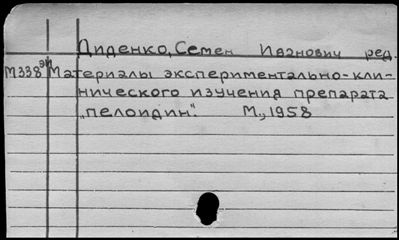 Диденко, Семен Иванович ред.
М338эи Материалы экспериментально-кли-
нического изучения препарата
„пелоидин“. М., 1958